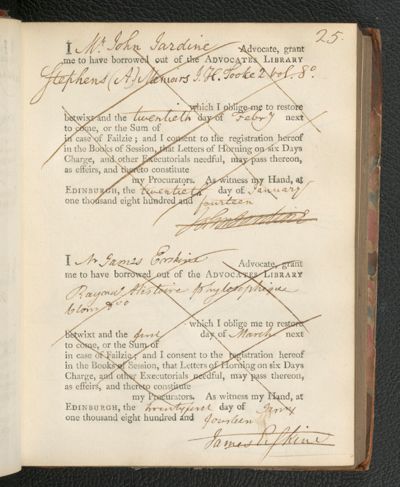 25.
I Mr. John Jardine Advocate, grant
me to have borrowed out of the ADVOCATES LIBRARY
Stephens (A) Memoirs J. H. Tooke 2 vol. 8o.
which I oblige me to restore
betwixt and the twentieth day of Febry next
to come, or the Sum of
in case of Failzie; and I consent to the registration hereof
in the Books of Session, that Letters of Horning on six Days
Charge, and other Executorials needful, may pass thereon,
as effeirs, and thereto constitute
my Procurators. As witness my Hand, at
EDINBURGH, the twentieth day of January
one thousand eight hundred and fourteen
John Jardine
I Mr James Erskine Advocate, grant
me to have borrowed out of the ADVOCATES LIBRARY
Raynal Histoire Phylosophique
8vo
which I oblige me to restore
betwixt and the first day of March next
to come, or the Sum of
in case of Failzie; and I consent to the registration hereof
in the Books of Session, that Letters of Horning on six Days
Charge, and other Executorials needful, may pass thereon,
as effeirs, and thereto constitute
my Procurators. As witness my Hand, at
EDINBURGH, the twentyfirst day of Jany
one thousand eight hundred and fourteen
James Erskine